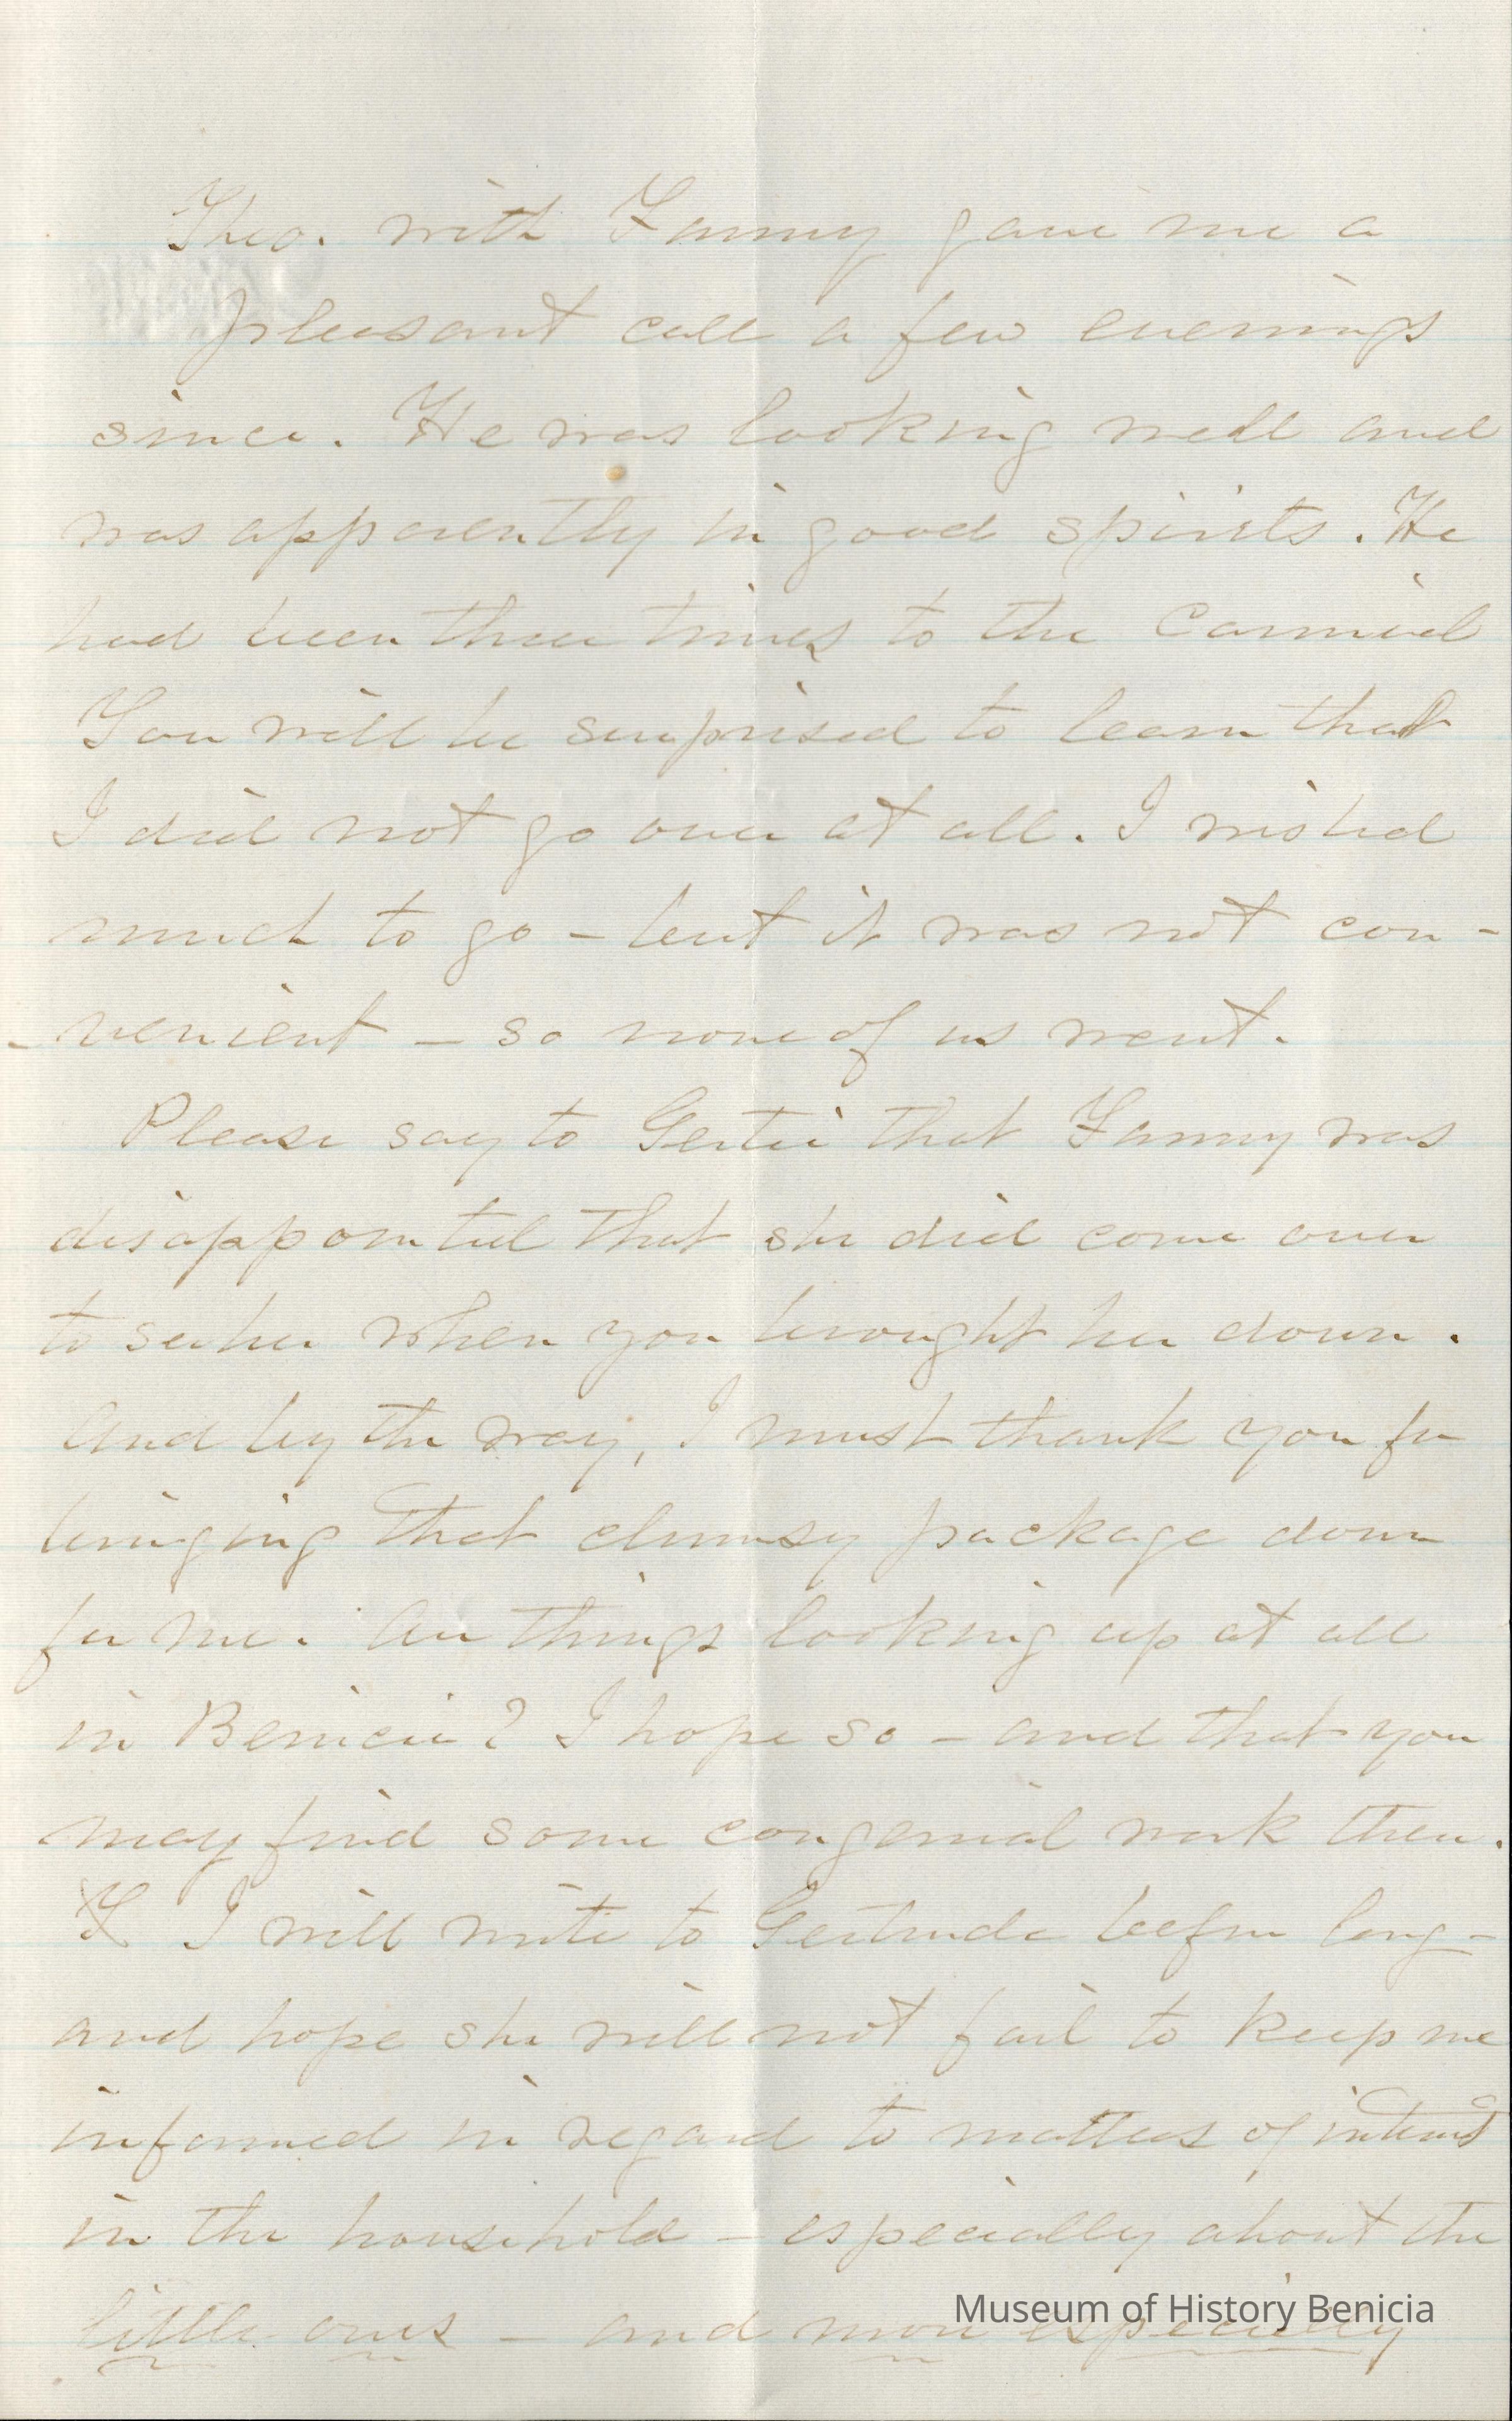 Theo. with Fanny gave me a
pleasant call a few evenings
since. He was looking well and
was apparently in good spirits. He
had been three times to the Carnival
You will be surprised to learn that
I did not go over at all. I wished
much to go - but it was not con-
- venient - so none of us went.
Please say to Gertie that Fanny was
disappointed that she did come over
to see her when you brought her down.
And by the way, I must thank you for
bringing that clumsy package down
for me. Are things looking up at all
in Benicia? I hope so - and that you
may find some congenial work there.
I will write to Gertrude before long -
and hope she will not fail to keep me
informed in regard to matters of interest
in the household - especially about the
little ones - and more especially
Museum of History Benicia